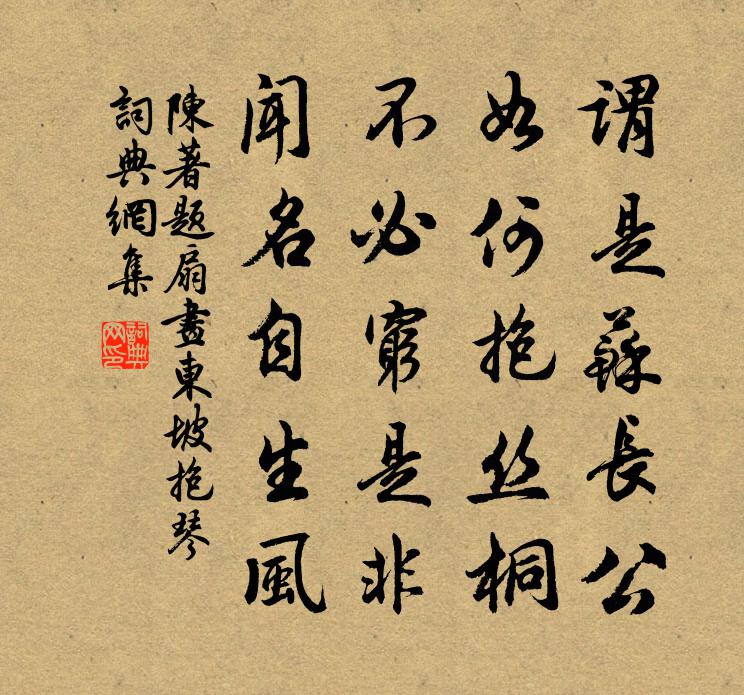 謂是蘇長公
如何抱丝桐
不必窮是非
聞名自生風
陳著題扇畫東坡抱琴
詞典網集
詞典网印